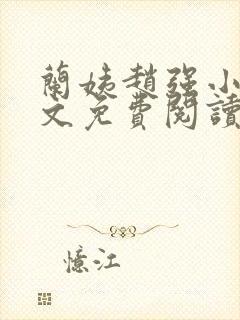 蘭姨趙強小
文免費閱讀
憶江